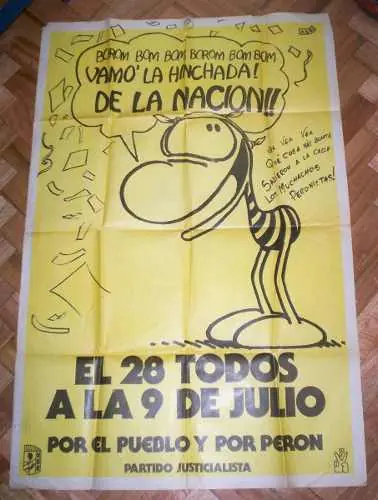 BOROM BOM BOM, BOROM BOM BOM
VAMO' LA HINCHADA!
DE LA NACION!!
YA VEN, YA VEN
QUE COSA MÁS BONITA
SALIERON A LA CALLE
LOS MUCHACHOS
PERONISTAS!
EL 28 TODOS
A LA 9 DE JULIO
POR EL PUEBLO Y POR PERON
PARTIDO JUSTICIALISTA